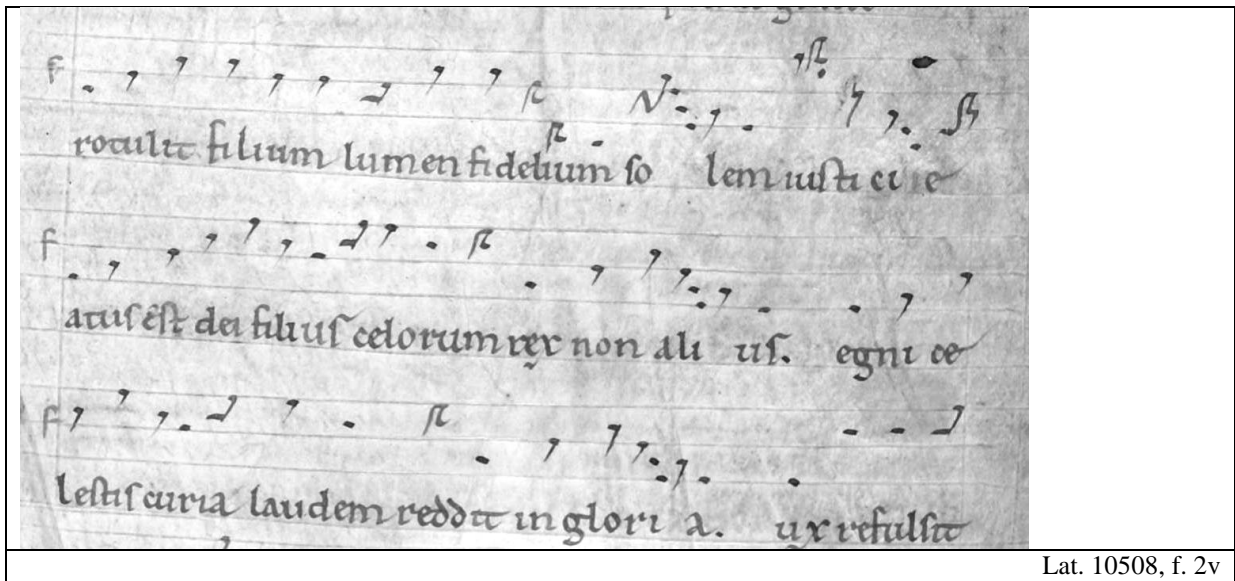 f
rotulit filium lumen fidelium so lem iusti ci e
f
atus est dei filius celorum rex non ali us. egni ce
f
lestis curia laudem reddit in glori a. ux refulsit
Lat. 10508, f. 2v